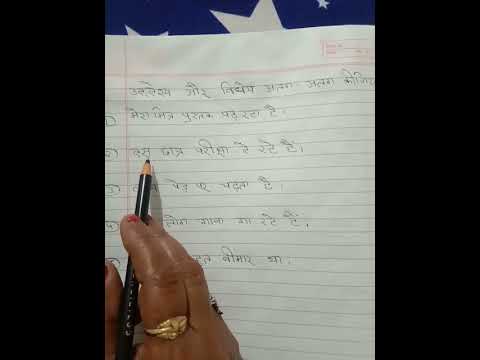 उद्देश्य और विधेय अलग - अलग कीजिए
1) मेरा मित्र पुस्तक पढ़ रहा है।
2) दस छात्र परीक्षा दे रहे हैं।
3) पेड़ पर चढ़ता है।
4) लोग गाना गा रहे हैं।
5) बीमार था।